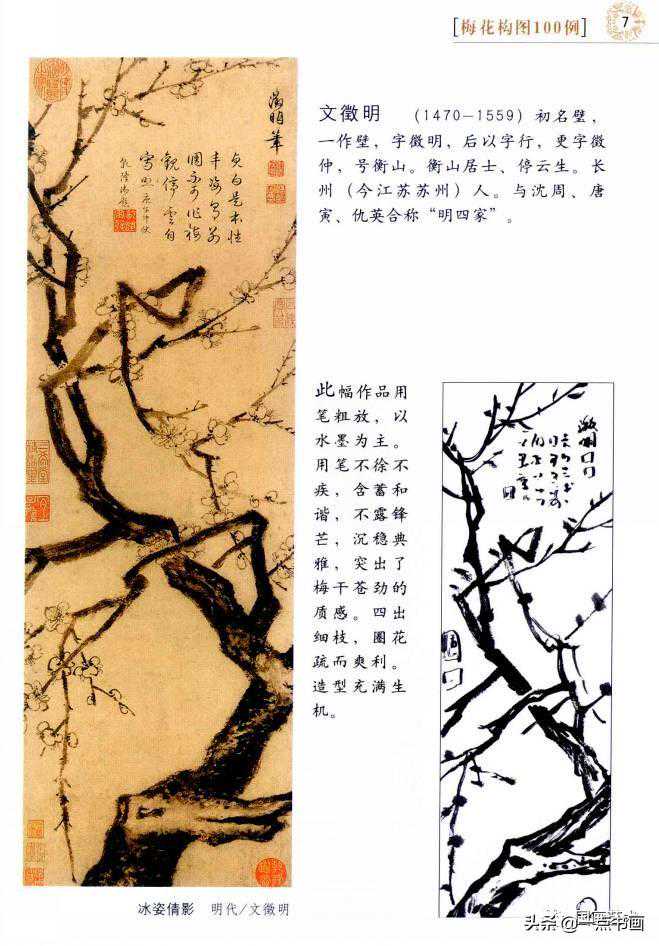 [梅花构图100例] 7
徵明筆
貞白是本性
丰姿寫前
觀停雲自
乾隆御題
文徵明 （1470－1559）初名璧，
一作壁，字徵明，后以字行，更字徵
仲，号衡山。衡山居士、停云生。长
州（今江苏苏州）人。与沈周、唐
寅、仇英合称“明四家”。
此幅作品用
笔粗放，以
水墨为主。
用笔不徐不
疾，含蓄和
谐，不露锋
芒，沉稳典
雅，突出了
梅干苍劲的
质感。四出
细枝，圈花
疏而爽利。
造型充满生
机。
冰姿倩影 明代/文徵明
头条@一点书画